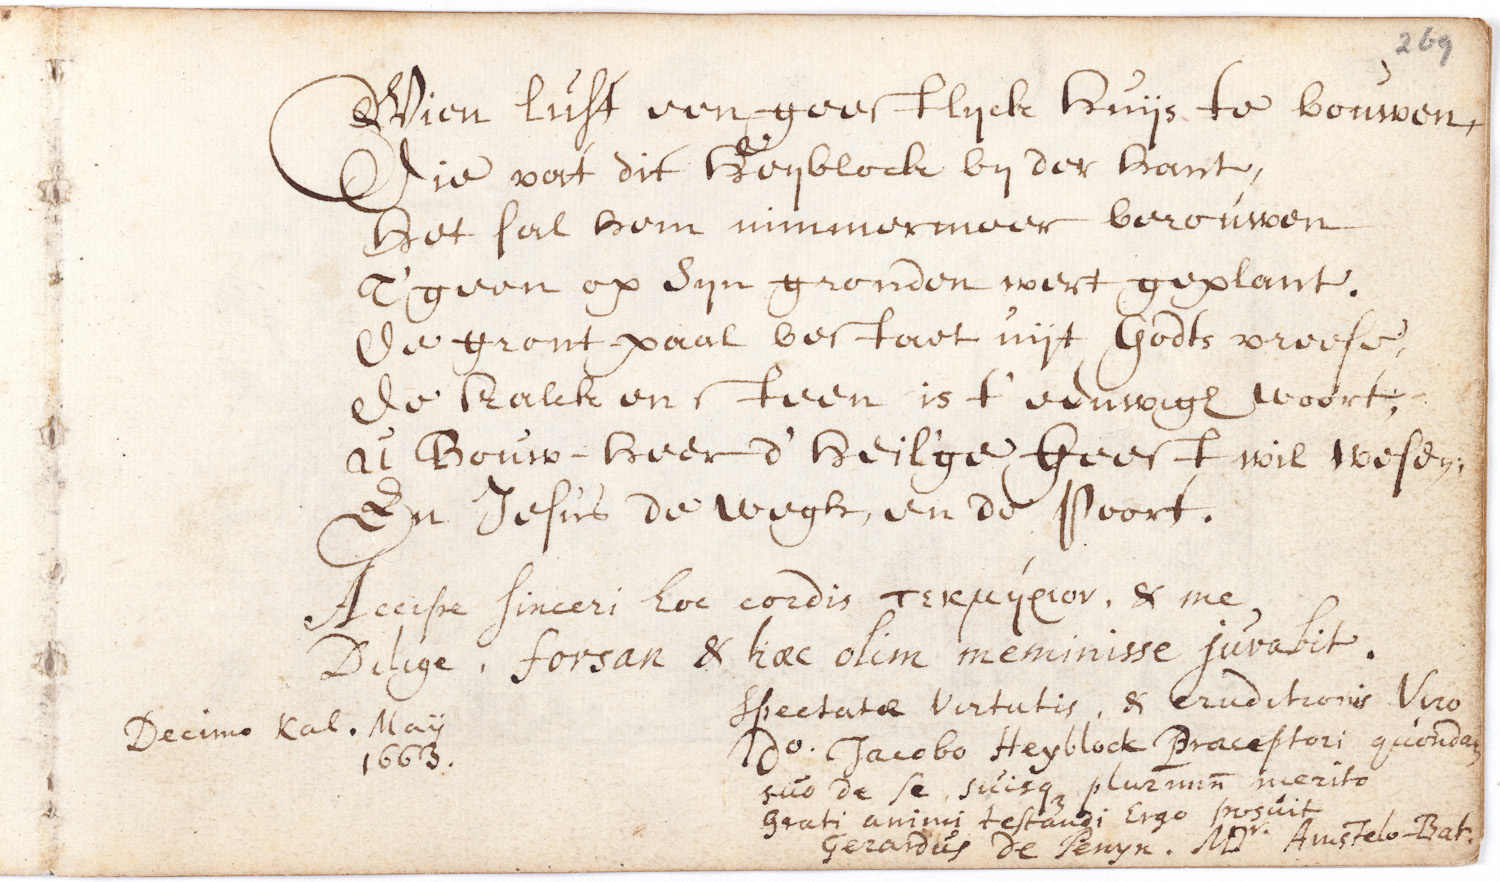 269
Wien lust een geestlyck huijs te bouwen,
Die vat dit Heyblock by der hant,
Het sal hem nimmermeer berouwen
T'geen op Syn gronden wert geplant.
De gront-paal bestaet uijt Godts vreese,
De kalck en steen is t' eeuwigh woort,
U Bouw-heer d' Heil'ge Geest wil wesen,
En Jesus de wegh, en de Poort.
Accipe sinceri hoc cordis τεκμήριον, & me
Dilige, forsan & hæc olim meminisse juvabit.
Spectatæ Virtutis, & eruditionis Viro
Decimo Kal. Maij
Do. Jacobo Heyblock Præceptori quondam
1663.
suo de se, suisq; plurimũ merito
Grati animi testandi Ergo posuit
Gerardus de Penyn. MDr. Amstelo-Bat.